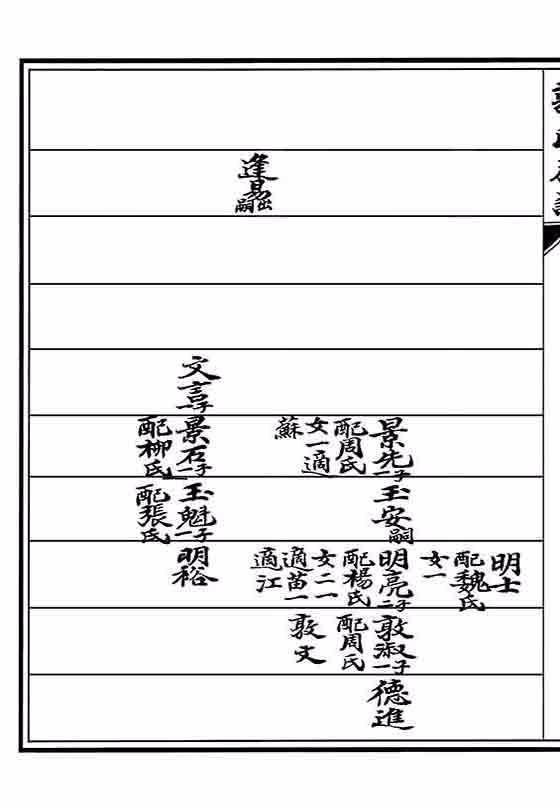 逢易出嗣
文言一子
景先一子
配周氏
女一適
蘇
景石一子
配柳氏
玉安嗣
玉魁一子
配張氏
明士
配魏氏
女一
明亮二子
配楊氏
女二一
適苗一
適江
明裕
敦淑一子
配周氏
敦文
德進